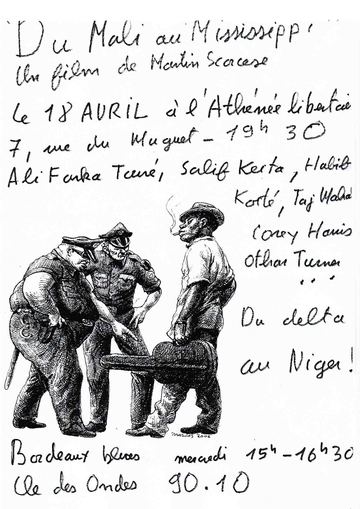 Du Mali au Mississippi
Un film de Martin Scorcese
Le 18 AVRIL à l'Athénée libertai
7, rue du Muguet - 19h 30
Ali Farka Touré, Salif Keita, Habib
Koité, Taj Mahal
Corey Harris
Othar Turner
...
Du delta
au Niger !
Bordeaux blues mercredi 15h-16h30
Cle des Ondes 90.10